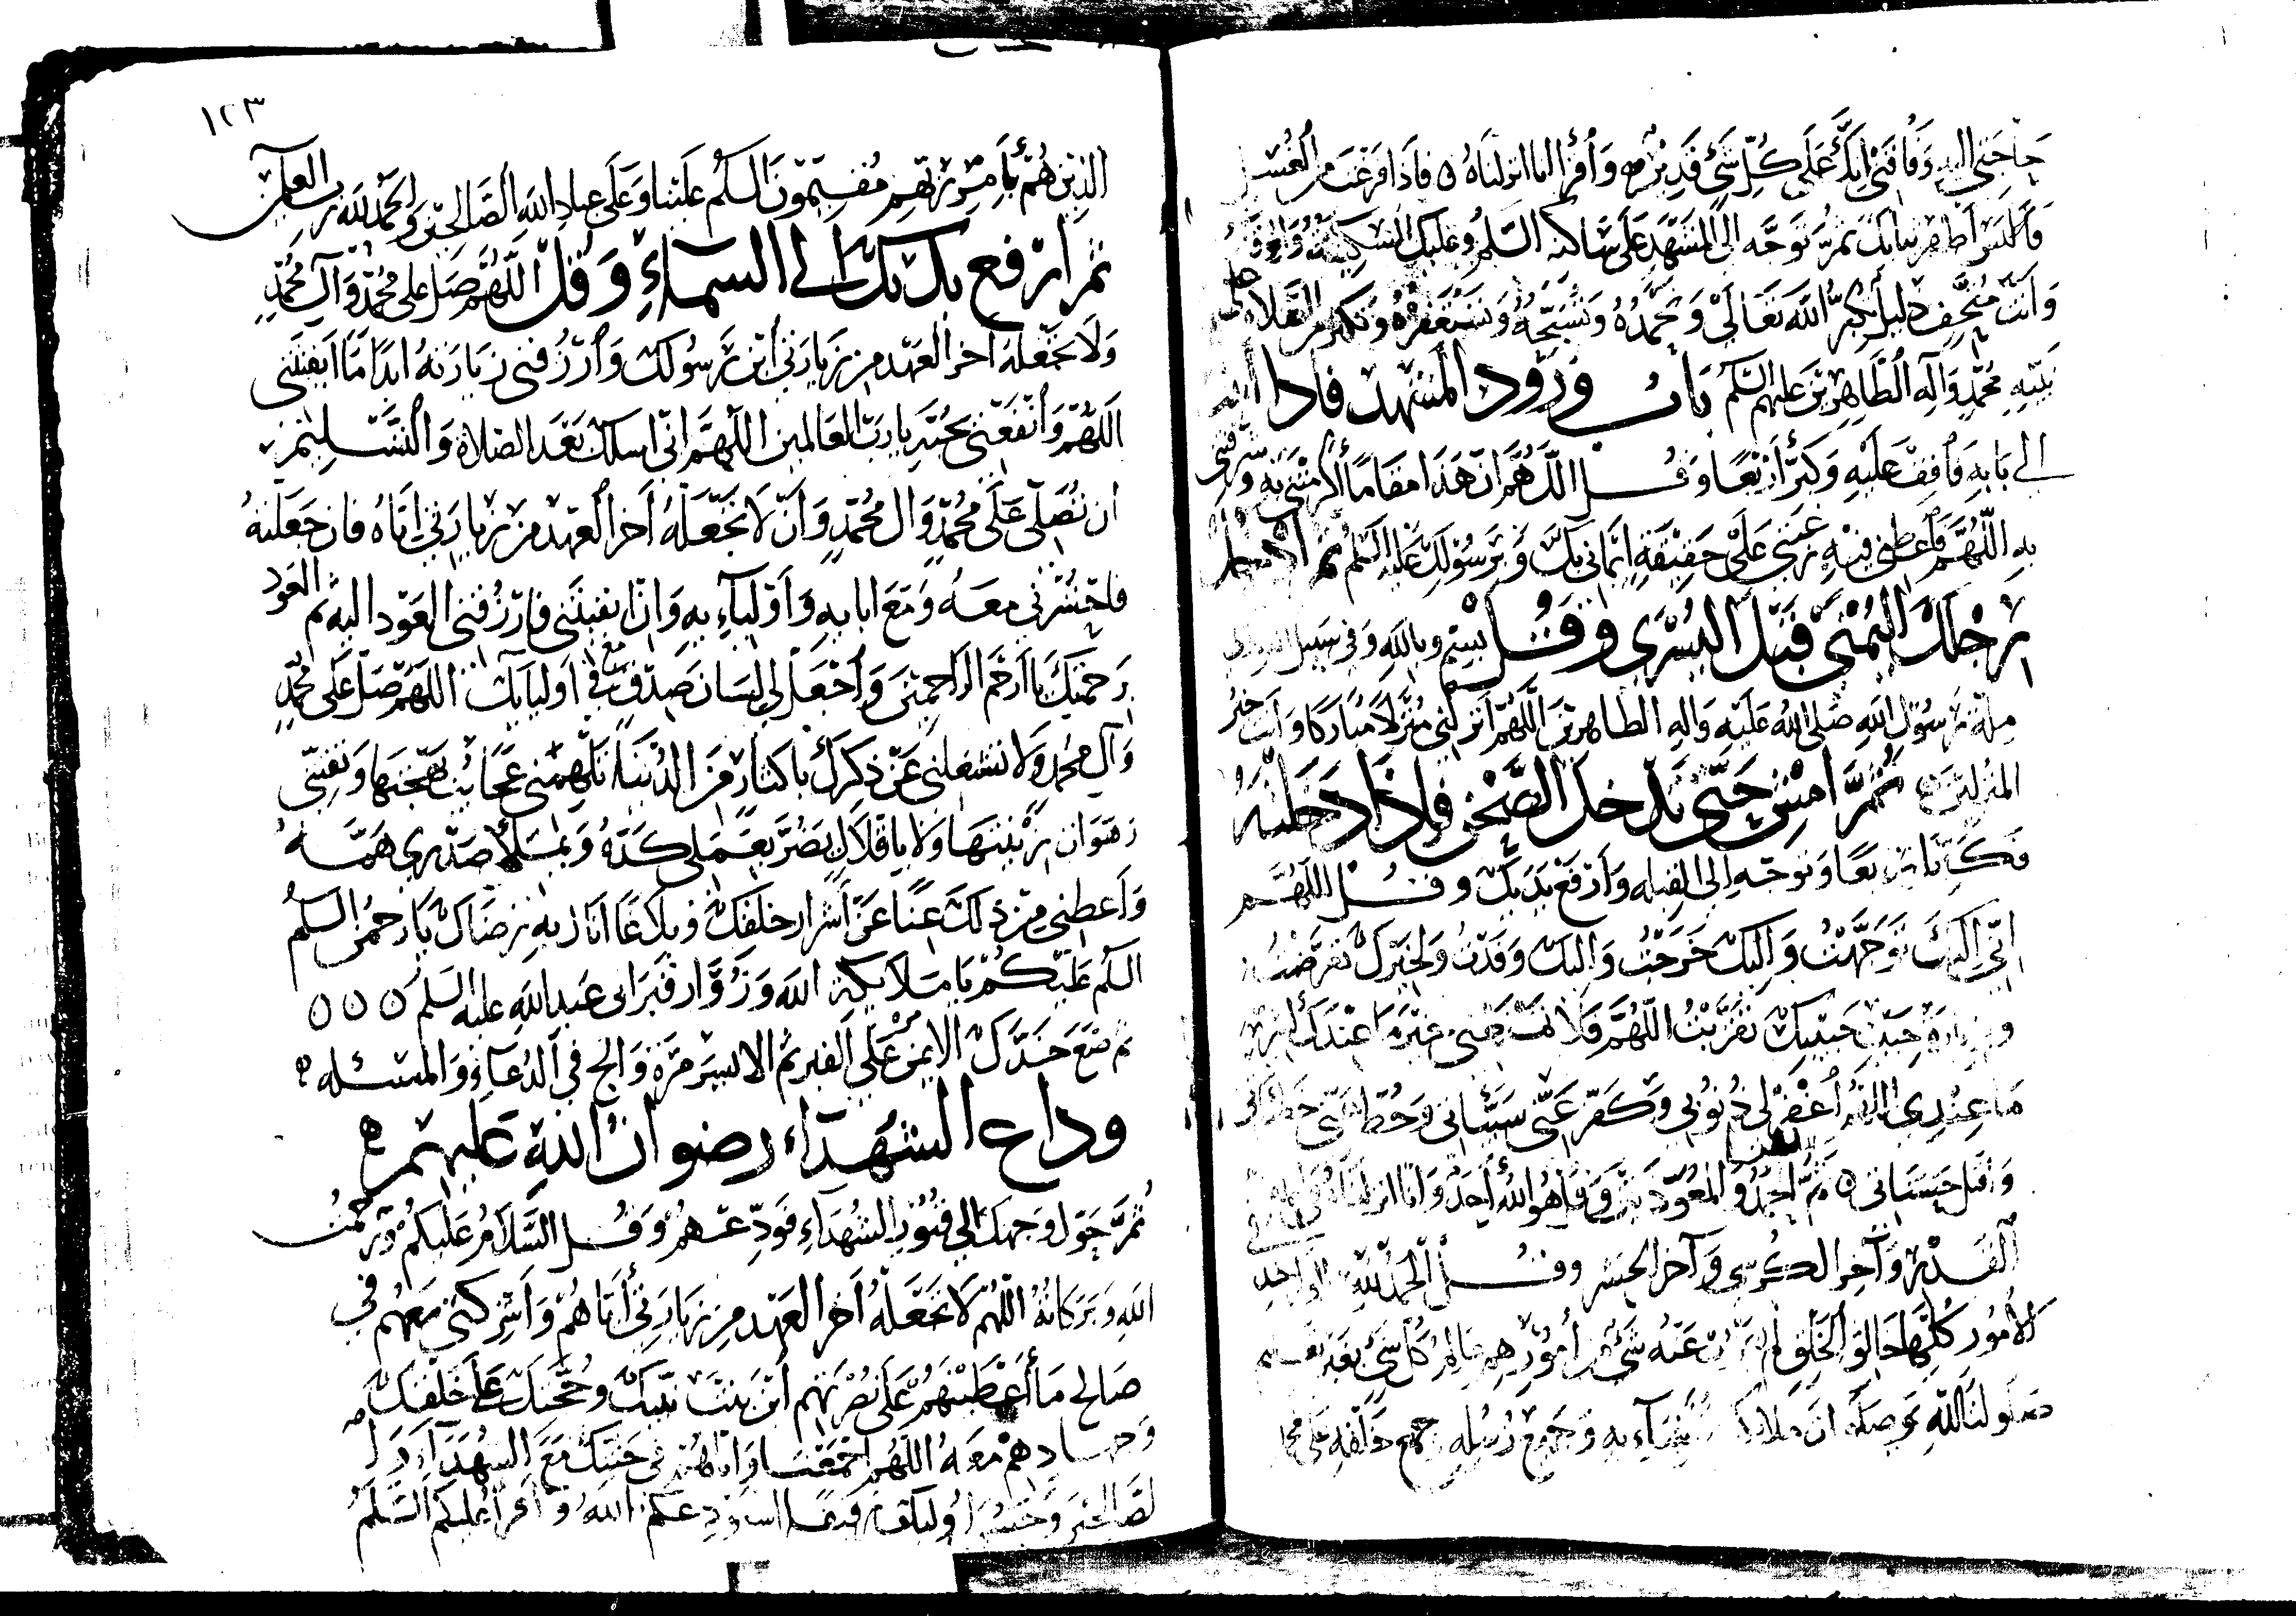 حاجتي اليه وفاقتي انك على كل شي قدير واقرا انا انزلناه ه فاذا فرغت من الغسل
فالبس اطهر ثيابك ثم توجه الى المشهد على ساكنه السلم وعليك السكينة والوقار
وانت متحف ذليل تكبر الله تعالى وتحمده وتسبحه وتستغفره وتكثر من الصلاة على
نبيه محمد وآله الطاهرين عليهم السلم باب ورود المشهد فاذا
الى بابه فاقف عليه وكبر اربعا وقل اللهم ان هذا مقاما اكرمتني به وشرفتني
به اللهم فاعطني فيه رغبتي على حقيقة ايماني بك وبرسولك عليه السلم ثم ادخل
رجلك اليمنى قبل اليسرى وقل بسم وبالله وفي سبيل الله وعلى
ملة رسول الله صلى الله عليه واله الطاهرين اللهم انزلني منزلا مباركا وانت خير
المنزلين ثم امش حتى تدخل الصحن فاذا دخلته
فكبر اربعا وتوجه الى القبله وارفع يديك وقل اللهم
اني اليك توجهت واليك خرجت واليك وفدت ولخيرك تعرضت
وبزيارة حبيب حبيبك تقربت اللهم فلا تمنعني خير ما عندك لشر
ما عندي اللهم اغفر لي ذنوبي وكفر عني سيئاتي وحط عني خطيئاتي
واقبل حسناتي ه ثم اقرا الحمد والمعوذتين وقل هو الله احد وانا انزلناه في ليلة
القدر وآية الكرسي وآخر الحشر وقل الحمد لله الواحد
الامور كلها خالق الخلق لم يعزب عنه شي من امورهم عالم كل شي بغير تعليم
صلوات الله وصلوات ملائكته وانبياءه وجميع رسله وجميع خلقه على محمد
١٢٣
الذين هم بامر ربهم مقيمون السلم علينا وعلى عباد الله الصالحين والحمد لله رب العالمين
ثم ارفع يديك الى السماء وقل اللهم صل على محمد وآل محمد
ولا تجعله اخر العهد من زيارتي ابن رسولك وارزقني زيارته ابدا ما ابقيتني
اللهم وانفعني بحبه يا رب العالمين اللهم اني اسلك بعد الصلاة والتسليم
ان تصلي على محمد وال محمد وان لا تجعله اخر العهد من زيارتي اياه فان جعلته
فاحشرني معه ومع ابايه واوليآءه وان ابقيتني فارزقني العود اليه ثم العود
برحمتك يا ارحم الراحمين واجعل لي لسان صدق في اوليايك اللهم صل على محمد
وآل محمد ولا تشغلني عن ذكرك باكثار من الدنيا تلهيني عجائب بهجتها وتفتني
زهوات زينتها ولا باقلال يضر بعملي كده ويملأ صدري همه
واعطني من ذلك غنا عن اشرار خلقك وبلاغا انال به رضاك يا رحمن السلم
السلم عليكم يا ملايكة الله وزوار قبر ابي عبد الله عليه السلم ه ه ه
ثم ضع خدك الايمن على القبر ثم الايسر مرة والح في الدعاء والمسئله ه
وداع الشهداء رضوان الله عليهم ه
ثم حول وجهك الى قبور الشهداء فودعهم وقل السلام عليكم ورحمت
الله وبركاته اللهم لا تجعله اخر العهد من زيارتي اياهم واشركني معهم في
صالح ما اعطيتهم على نصرتهم ابن بنت نبيك وحجتك على خلقك
وجهادهم معه اللهم اجمعنا واياهم في جنتك مع الشهداء
لصالحين وحسن اوليك رفيقا استودعكم الله واقرا عليكم السلم